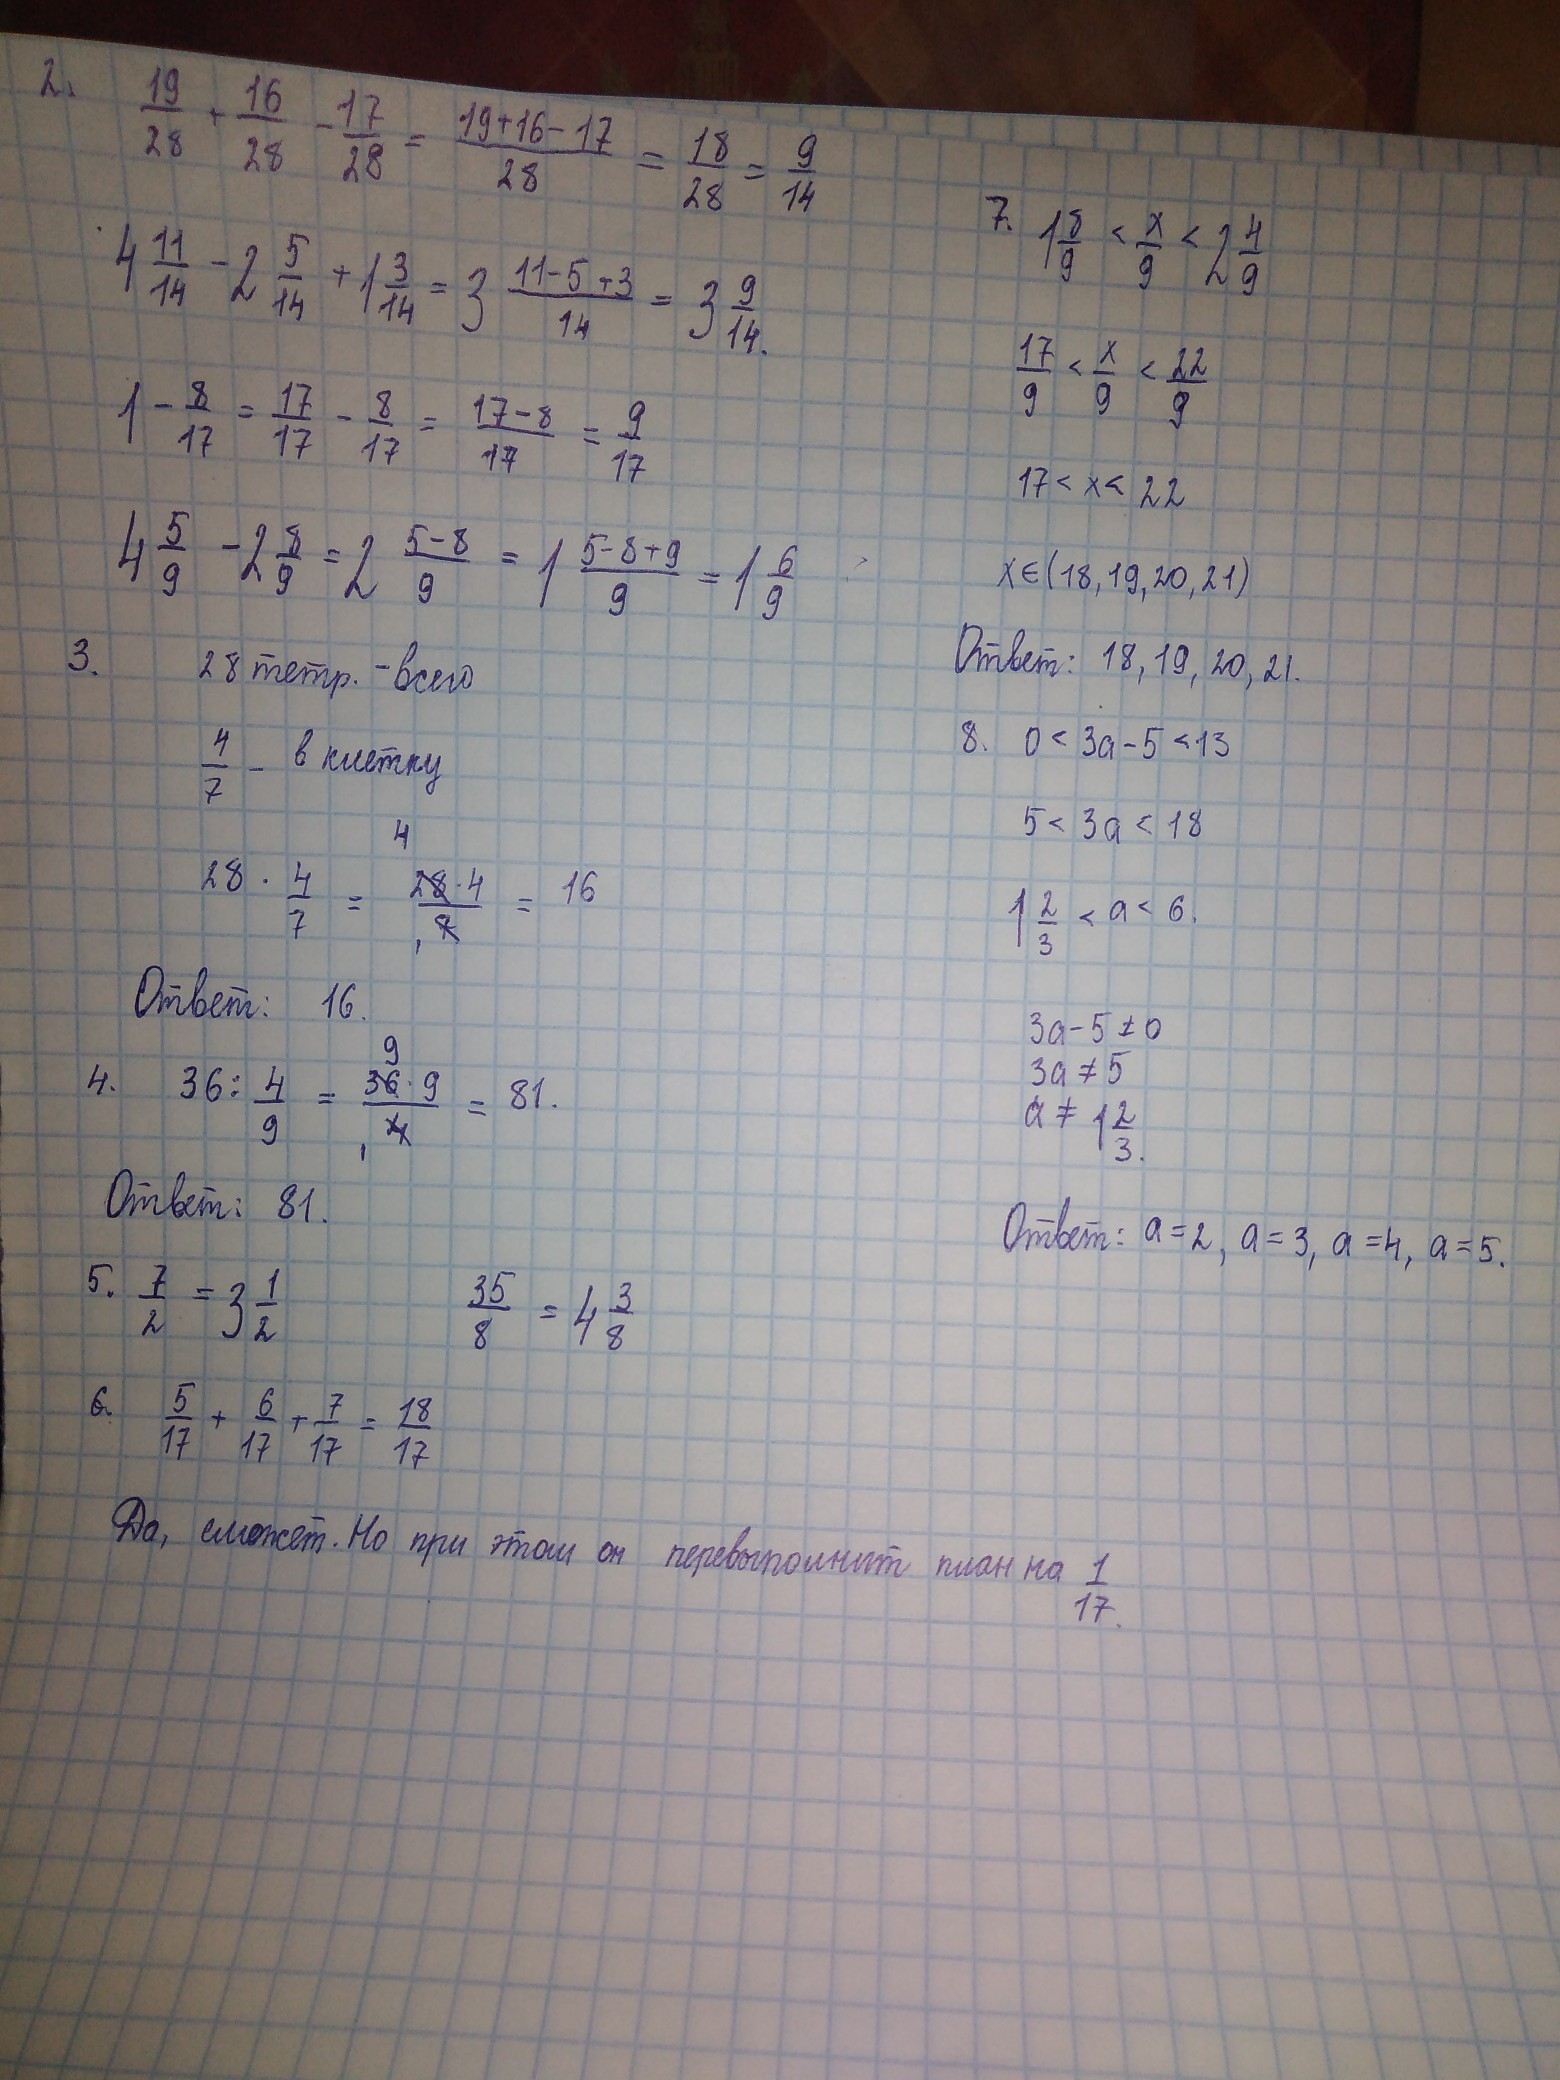 2. 19/28 + 16/28 - 17/28 = (19+16-17)/28 = 18/28 = 9/14
4 11/14 - 2 5/14 + 1 3/14 = 3 (11-5+3)/14 = 3 9/14.
1 - 8/17 = 17/17 - 8/17 = (17-8)/17 = 9/17
4 5/9 - 2 8/9 = 2 (5-8)/9 = 1 (5-8+9)/9 = 1 6/9
3. 28 тетр. - всего
4/7 - в клетку
4
28 · 4/7 = 28·4/7 = 16
1
Ответ: 16.
9
4. 36 : 4/9 = 36·9/4 = 81.
1
Ответ: 81.
5. 7/2 = 3 1/2 35/8 = 4 3/8
6. 5/17 + 6/17 + 7/17 = 18/17
Да, сможет. Но при этом он перевыполнит план на 1/17.
7. 1 8/9 < x/9 < 2 4/9
17/9 < x/9 < 22/9
17 < x < 22
x∈(18,19,20,21)
Ответ: 18, 19, 20, 21.
8. 0 < 3a-5 < 13
5 < 3a < 18
1 2/3 < a < 6.
3a-5 ≠ 0
3a ≠ 5
a ≠ 1 2/3.
Ответ: a=2, a=3, a=4, a=5.